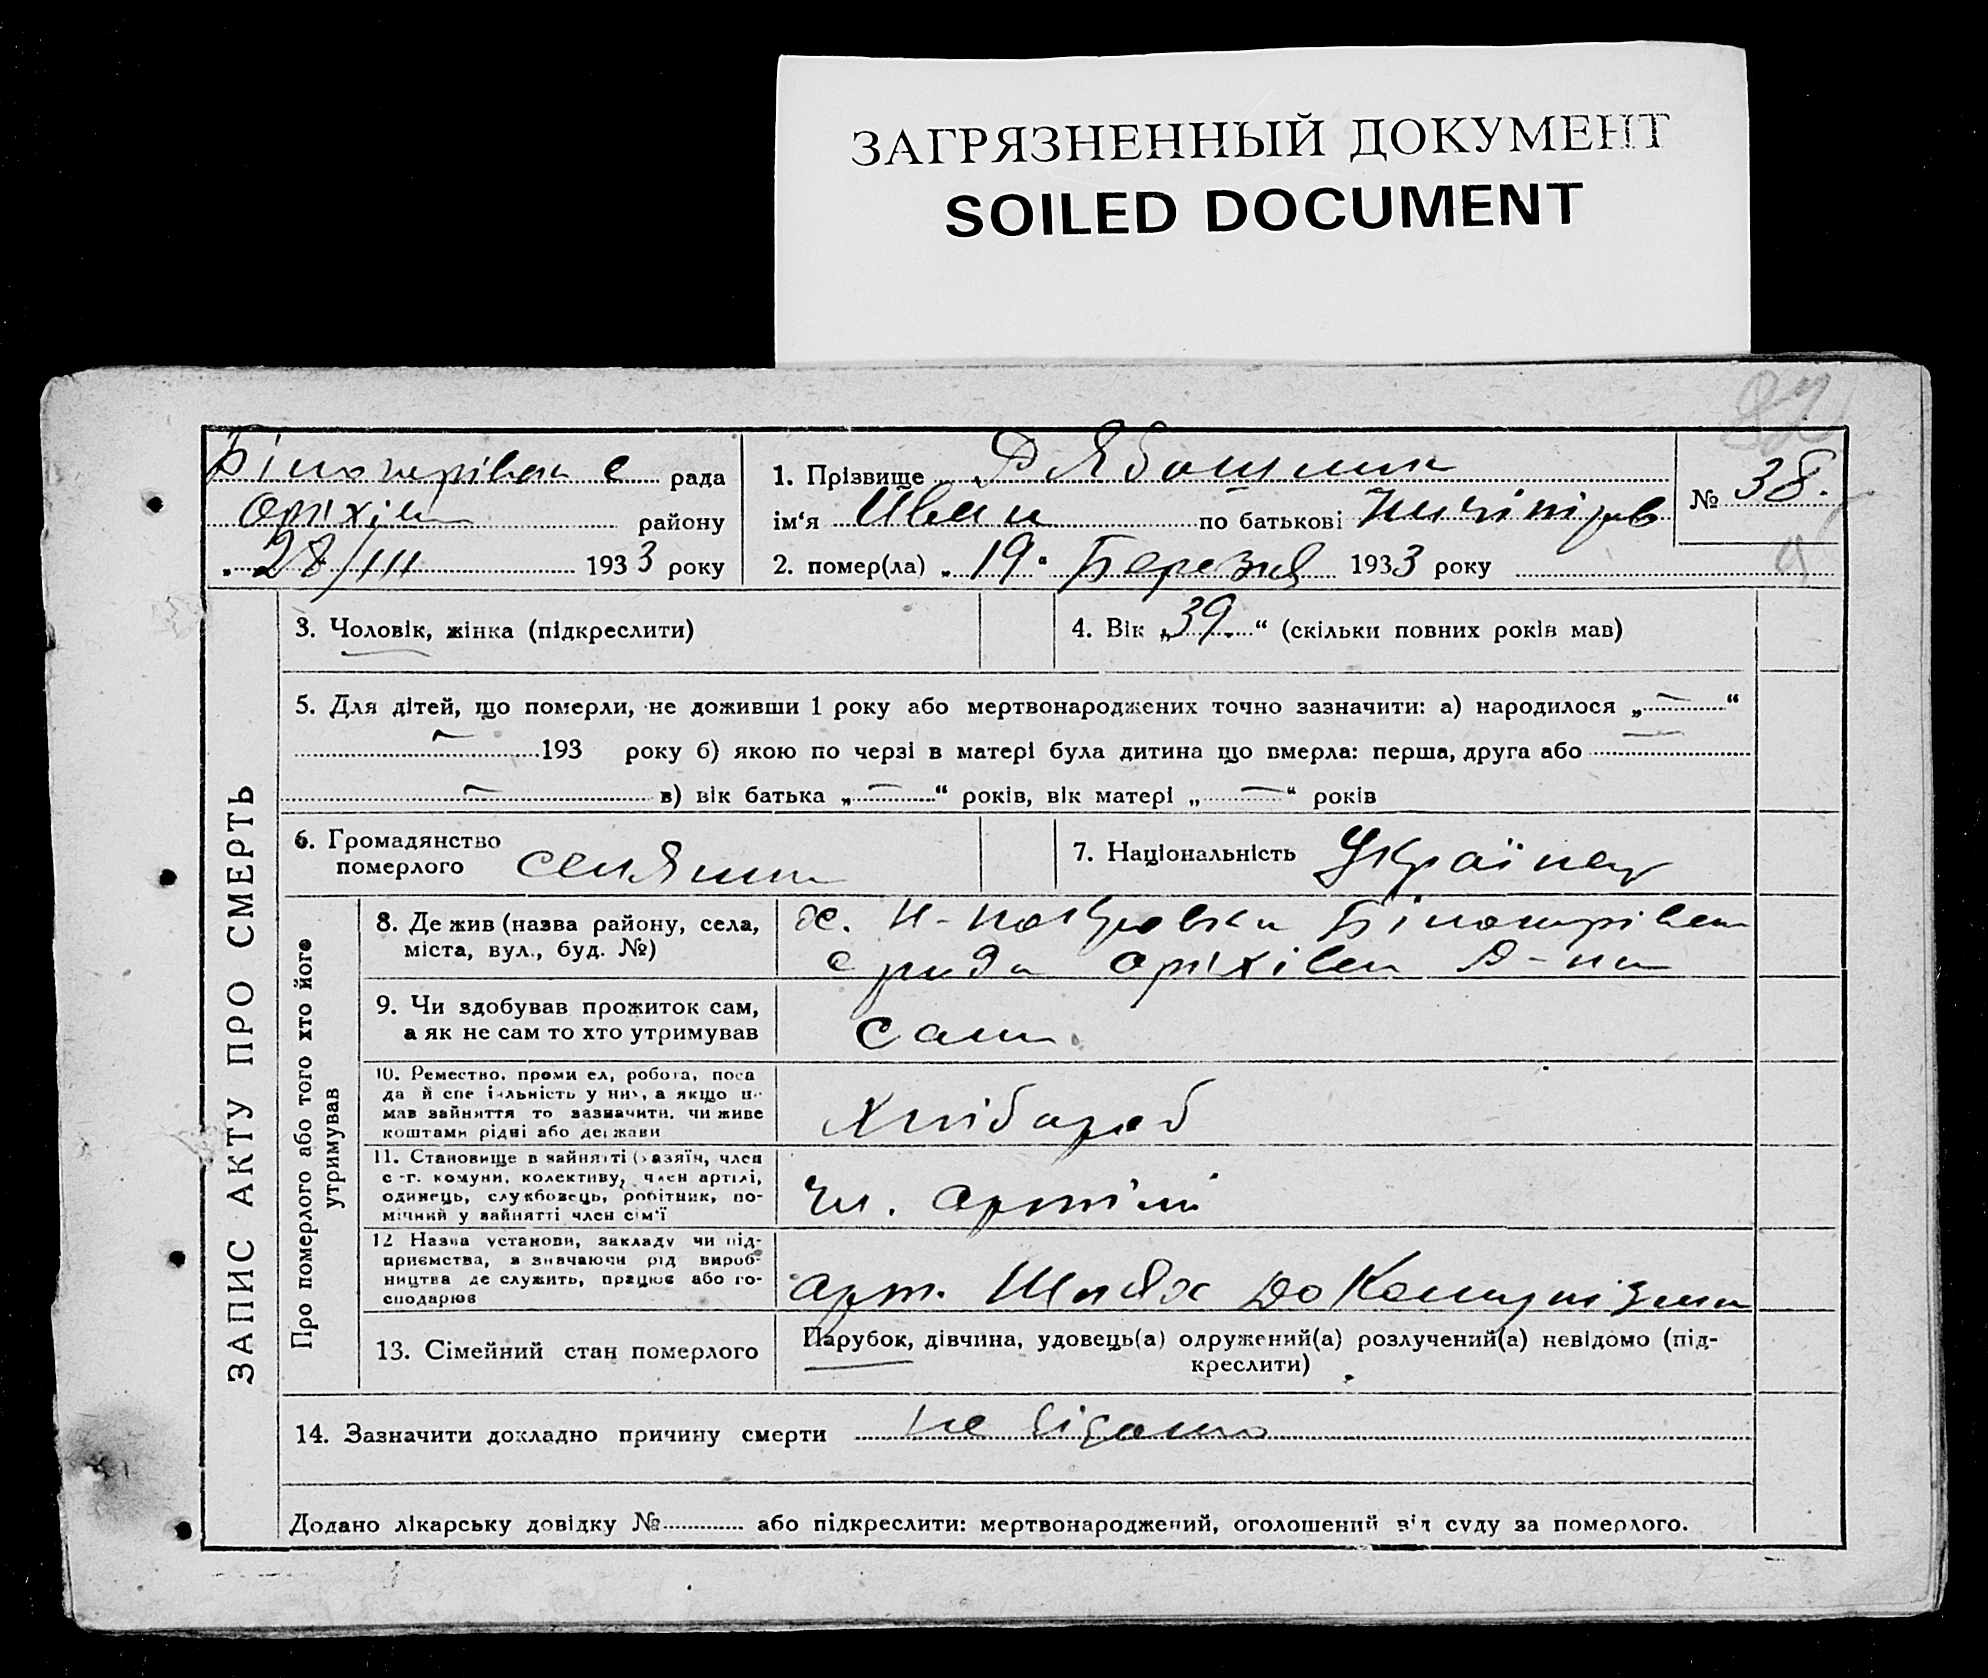 ЗАГРЯЗНЕННЫЙ ДОКУМЕНТ
SOILED DOCUMENT
82
Білогирівск с рада
Оріхів району
"28/III 1933 року
1. Прізвище Рябошлик
ім'я Иван по батькові Ничипоров
№ 38.
2. помер(ла) „19" Березня 1933 року
ЗАПИС АКТУ ПРО СМЕРТЬ
3. Чоловік, жінка (підкреслити)
4. Вік „39" (скільки повних років мав)
5. Для дітей, що померли, не доживши 1 року або мертвонароджених точно зазначити: а) народилося „—"
— 193 року б) якою по черзі в матері була дитина що вмерла: перша, друга або —
— в) вік батька „—" років, вік матері „—" років
6. Громадянство
померлого селянин
7. Національність Українец
Про померлого або того хто його
утримував
8. Де жив (назва району, села,
міста, вул., буд. №)
х. Н-Покровка Білогирівск
с рада Оріхівск Р-на
9. Чи здобував прожиток сам,
а як не сам то хто утримував
сам.
10. Ремество, проми ел, робота, поса
да й спе іяльність у них, а якщо н
мав зайняття то зазначити, чи живе
коштами рідні або держави
Хлібороб
11. Становище в зайнятті (хазяїн, член
с-г. комуни, колективу, член артілі,
одинець, службовець, робітник, по-
мічний у зайнятті член сім'ї
Чл. артілі
12 Назва установи, закладу чи під-
приємства, зазначаючи рід вироб-
ництва де служить, працює або го-
сподарює
арт. Шлях до Комунізма
13. Сімейний стан померлого
Парубок, дівчина, удовець(а) одружений(а) розлучений(а) невідомо (під-
креслити)
14. Зазначити докладно причину смерти не відомо
Додано лікарську довідку № або підкреслити: мертвонароджений, оголошений від суду за померлого.